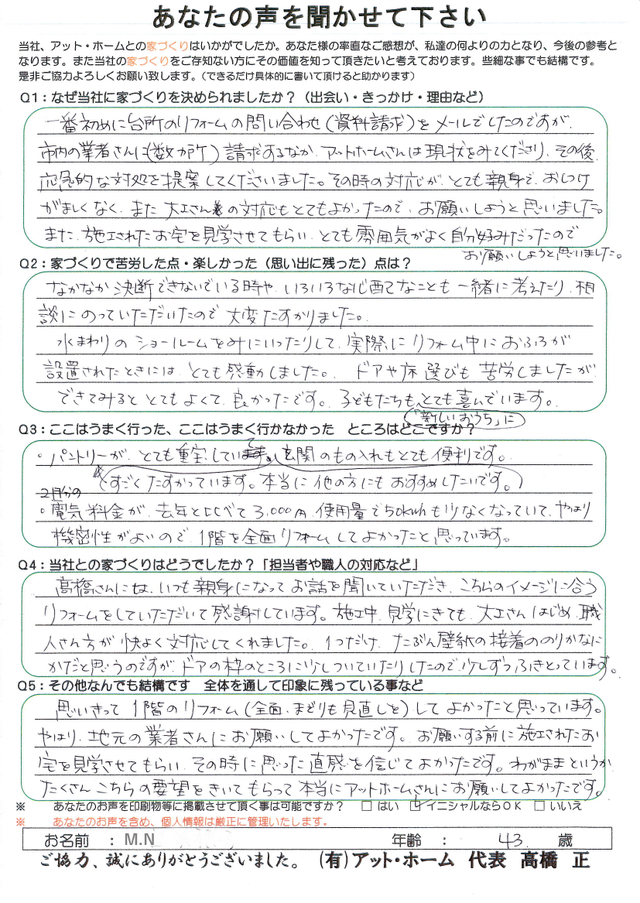 あなたの声を聞かせて下さい
当社、アット・ホームとの家づくりはいかがでしたか。あなた様の率直なご感想が、私達の何よりの力となり、今後の参考と
なります。また当社の家づくりをご存知ない方にその価値を知って頂きたいと考えております。些細な事でも結構です。
是非ご協力よろしくお願い致します。（できるだけ具体的に書いて頂けると助かります）
Q1：なぜ当社に家づくりを決められましたか？（出会い・きっかけ・理由など）
一番初めに台所のリフォームの問い合わせ（資料請求）をメールでしたのですが、
市内の業者さんに（数か所）請求するなか、アットホームさんは現状をみてくださり、その後
応急的な対処を提案してくださいました。その時の対応が、とても親身で、おしつけ
がましくなく、また大工さんの対応もとてもよかったので、お願いしようと思いました。
また、施工されたお宅を見学させてもらい、とても雰囲気がよく自分好みだったので
お願いしようと思いました。
Q2：家づくりで苦労した点・楽しかった（思い出に残った）点は？
なかなか決断できないでいる時や、いろいろな心配なことも一緒に考えたり、相
談にのっていただいたので大変たすかりました。
水まわりのショールームをみにいったりして、実際にリフォーム中におふろが
設置されたときには とても感動しました。 ドアや床選びも苦労しましたが
できてみると とてもよくて、良かったです。子どもたちも、とても喜んでいます。
「新しいおうち」に
Q3：ここはうまく行った、ここはうまく行かなかった ところはどこですか？
・パントリーが、とても重宝しています。玄関のもの入れもとても便利です。
（すごくたすかっています。本当に他の方にもおすすめしたいです。）
2月分の
・電気料金が、去年と比べて3,000円、使用量で50kwhも少なくなっていて、やはり
機密性がよいので、1階を全面リフォームしてよかったと思っています。
Q4：当社との家づくりはどうでしたか？「担当者や職人の対応など」
高橋さんには、いつも親身になってお話を聞いていただき、こちらのイメージに合う
リフォームをしていただいて感謝しています。施工中、見学にきても、大工さんはじめ、職
人さん方が快よく対応してくれました。1つだけ、たぶん壁紙の接着ののりかなに
かだと思うのですが、ドアの枠のところに少しついていたりしたので、少しずつふきとっています。
Q5：その他なんでも結構です 全体を通して印象に残っている事など
思いきって1階のリフォーム（全面、まどりも見直しを）してよかったと思っています。
やはり、地元の業者さんにお願いしてよかったです。お願いする前に施工されたお
宅を見学させてもらい、その時に思った直感を信じてよかったです。わがままというか
たくさんこちらの要望をきいてもらって本当にアットホームさんにお願いしてよかったです。
※ あなたのお声を印刷物等に掲載させて頂く事は可能ですか？ □ はい ☑ イニシャルならOK □ いいえ
※ あなたのお声を含め、個人情報は厳正に管理いたします。
お名前 ： M.N 年齢 ： 43 歳
ご協力、誠にありがとうございました。 （有）アット・ホーム 代表 高橋 正